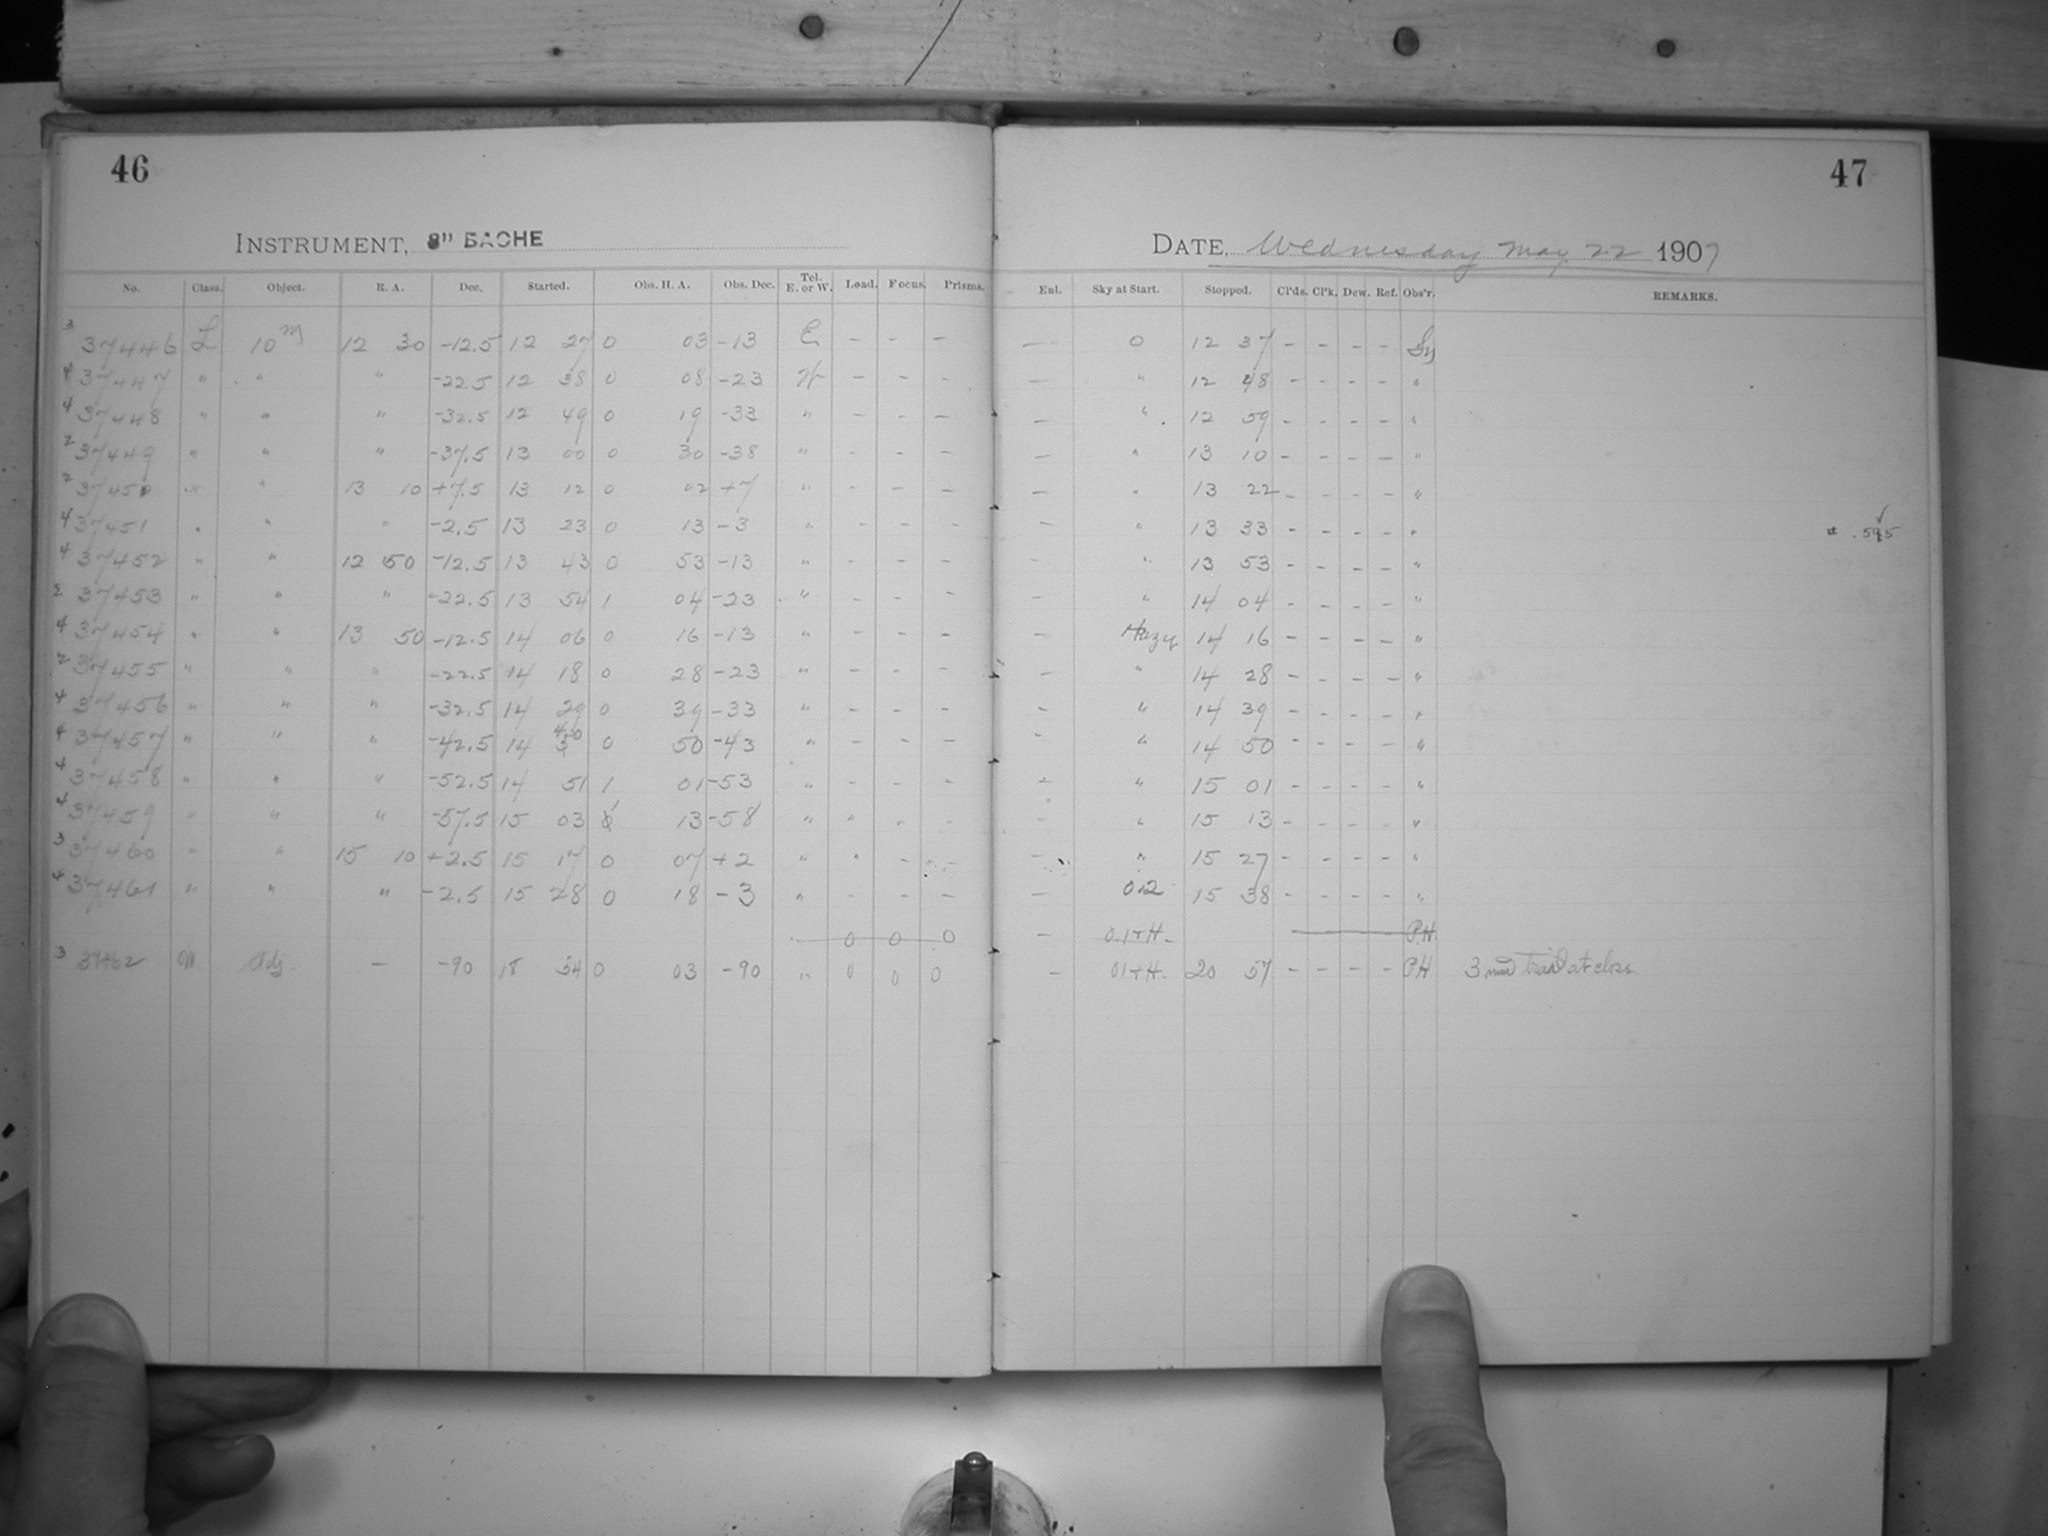 46
47
INSTRUMENT, 8" BACHE
DATE, Wednesday May 22 1907
No. Class. Object. R. A. Dec. Started. Obs. H. A. Obs. Dec. Tel. E. or W. Load. Focus. Prisms. Enl. Sky at Start. Stopped. Cl'ds. Cl'k. Dew. Ref. Obs'r. REMARKS.
3 37446 L 10 m 12 30 -12.5 12 27 0 03 -13 E - - - - 0 12 37 - - - -
4 37447 " " " -22.5 12 38 0 08 -23 W - - - - " 12 48 - - - - "
4 37448 " " " -32.5 12 49 0 19 -33 " - - - - " 12 59 - - - - "
2 37449 " " " -37.5 13 00 0 30 -38 " - - - - " 13 10 - - - - "
2 37450 " " 13 10 +7.5 13 12 0 02 +7 " - - - - " 13 22 - - - - "
4 37451 " " " -2.5 13 23 0 13 -3 " - - - - " 13 33 - - - - " .595
4 37452 " " 12 50 -12.5 13 43 0 53 -13 " - - - - " 13 53 - - - - "
2 37453 " " " -22.5 13 54 1 04 -23 " - - - - " 14 04 - - - - "
4 37454 " " 13 50 -12.5 14 06 0 16 -13 " - - - - Hazy 14 16 - - - - "
2 37455 " " " -22.5 14 18 0 28 -23 " - - - - " 14 28 - - - - "
4 37456 " " " -32.5 14 29 0 39 -33 " - - - - " 14 39 - - - - "
4 37457 " " " -42.5 14 40 0 50 -43 " - - - - " 14 50 - - - - "
4 37458 " " " -52.5 14 51 1 01 -53 " - - - - " 15 01 - - - - "
4 37459 " " " -57.5 15 03 1 13 -58 " " - - - " 15 13 - - - - "
3 37460 " " 15 10 +2.5 15 17 0 07 +2 " " - - - " 15 27 - - - - "
4 37461 " " " -2.5 15 28 0 18 -3 " - - - - 0.2 15 38 - - - - "
0 0 0 - 0.1+H. P.H.
3 37462 M Adj. - -90 18 54 0 03 -90 " 0 0 0 - 01+H. 20 57 - - - - PH 3 min trail at close